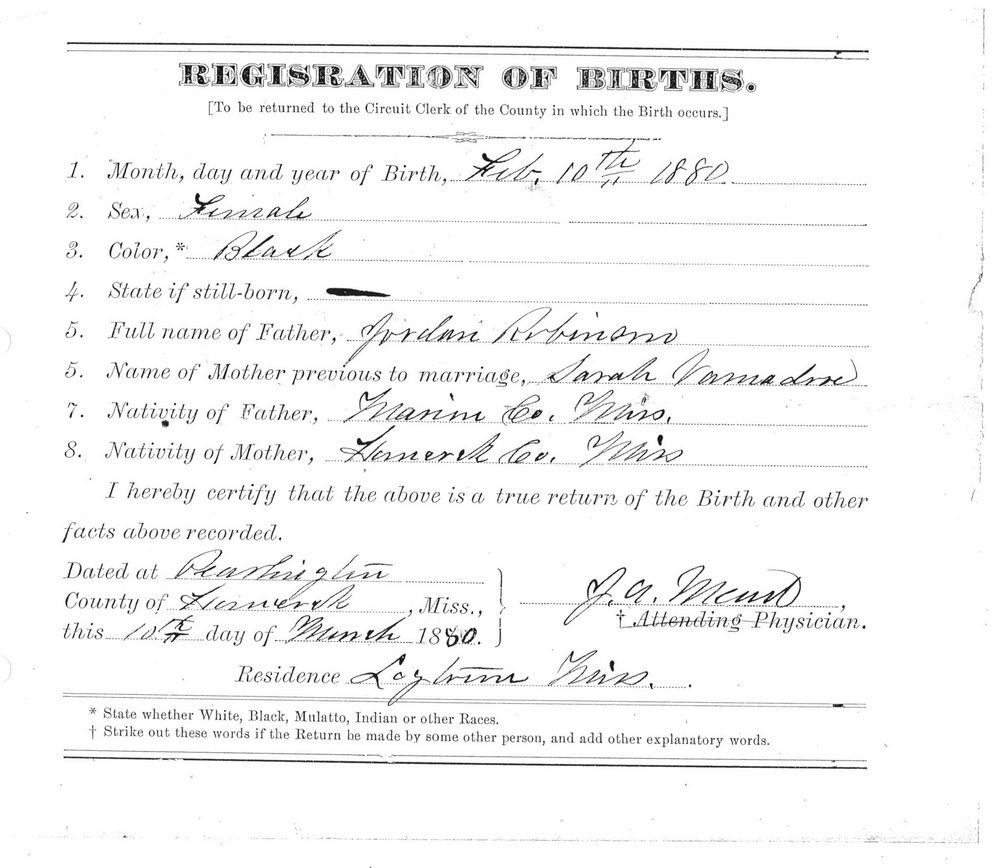 REGISRATION OF BIRTHS.
[To be returned to the Circuit Clerk of the County in which the Birth occurs.]
1. Month, day and year of Birth, Feb. 10th 1880
2. Sex, Female
3. Color,* Black
4. State if still-born,
5. Full name of Father, Jordan Robinson
5. Name of Mother previous to marriage, Sarah
7. Nativity of Father, Marion Co. Miss.
8. Nativity of Mother, Co. Miss
I hereby certify that the above is a true return of the Birth and other
facts above recorded.
Dated at
County of , Miss.,
this 10th day of March 1880.
J. A.
† Attending Physician.
Residence Miss.
* State whether White, Black, Mulatto, Indian or other Races.
† Strike out these words if the Return be made by some other person, and add other explanatory words.